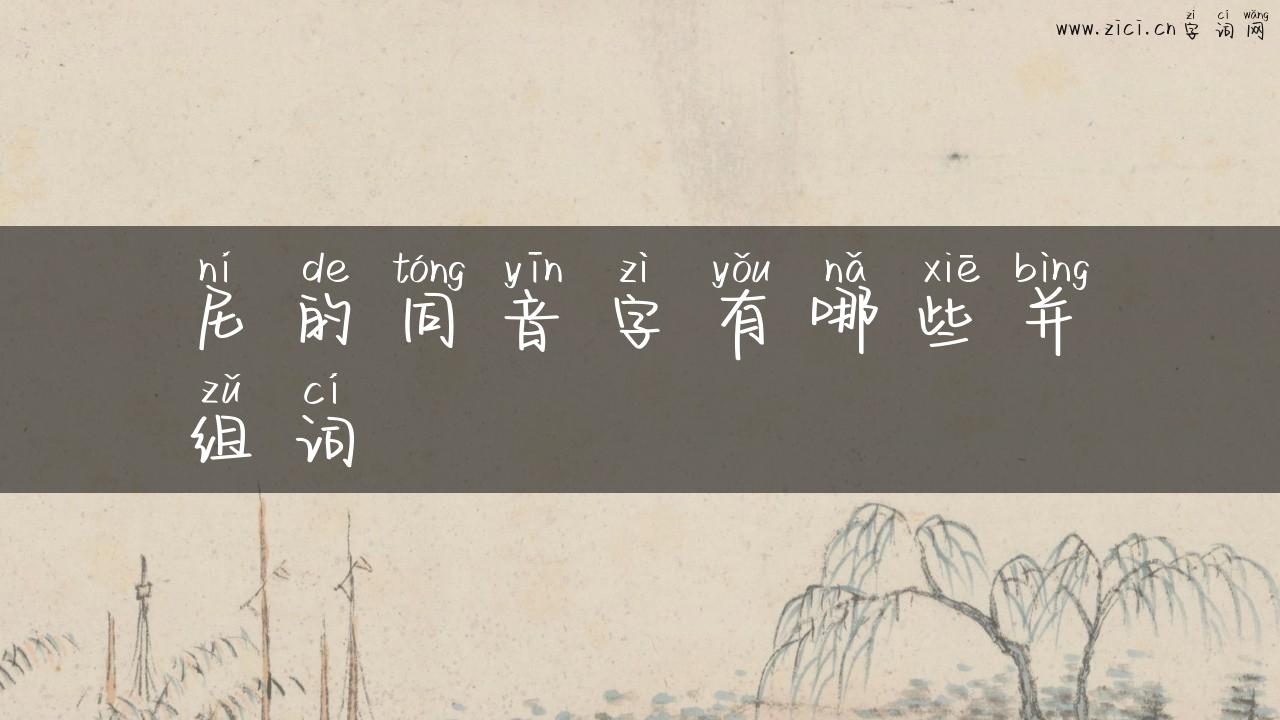 zì cí wǎng
www.zici.cn 字词网
ní de tóng yīn zì yǒu nǎ xiē bìng
尼的同音字有哪些并
zǔ cí
组词